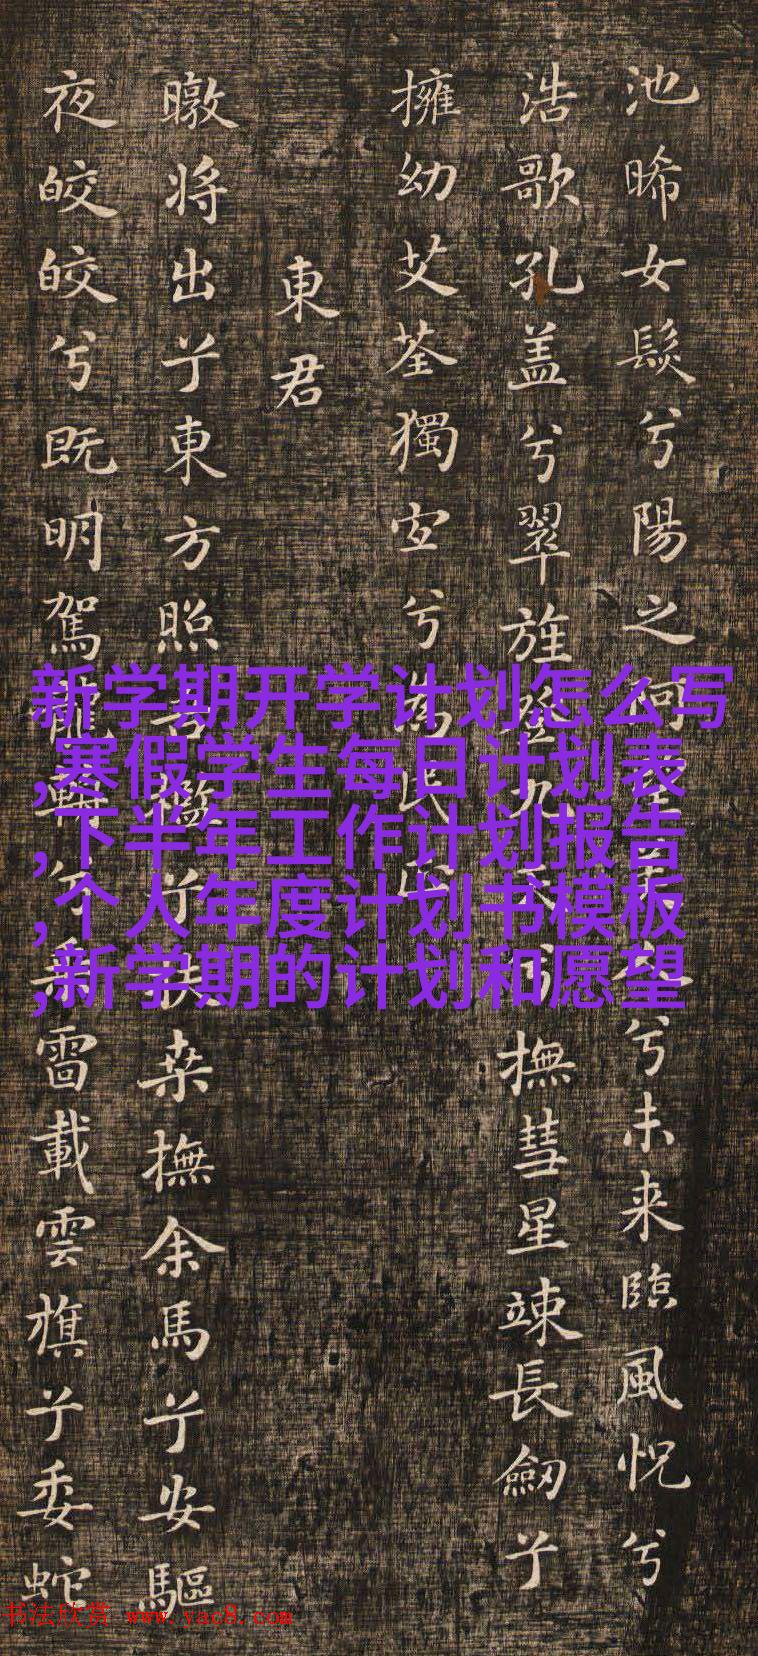 池晞女髮兮陽之阿望美人兮未来臨風怳兮
浩歌孔盖兮翠旌登九天兮撫彗星竦長劒兮
擁幼艾荃獨宜兮為民正
東君
暾将出兮東方照吾檻兮扶桒撫余馬兮安驅
夜皎皎兮既明駕龍輈兮乗雷載雲旗兮委蛇
新学期开学计划怎么写
,寒假学生每日计划表
,下半年工作计划报告
,个人年度计划书模板
,新学期的计划和愿望
书法欣赏 www.yac8.com